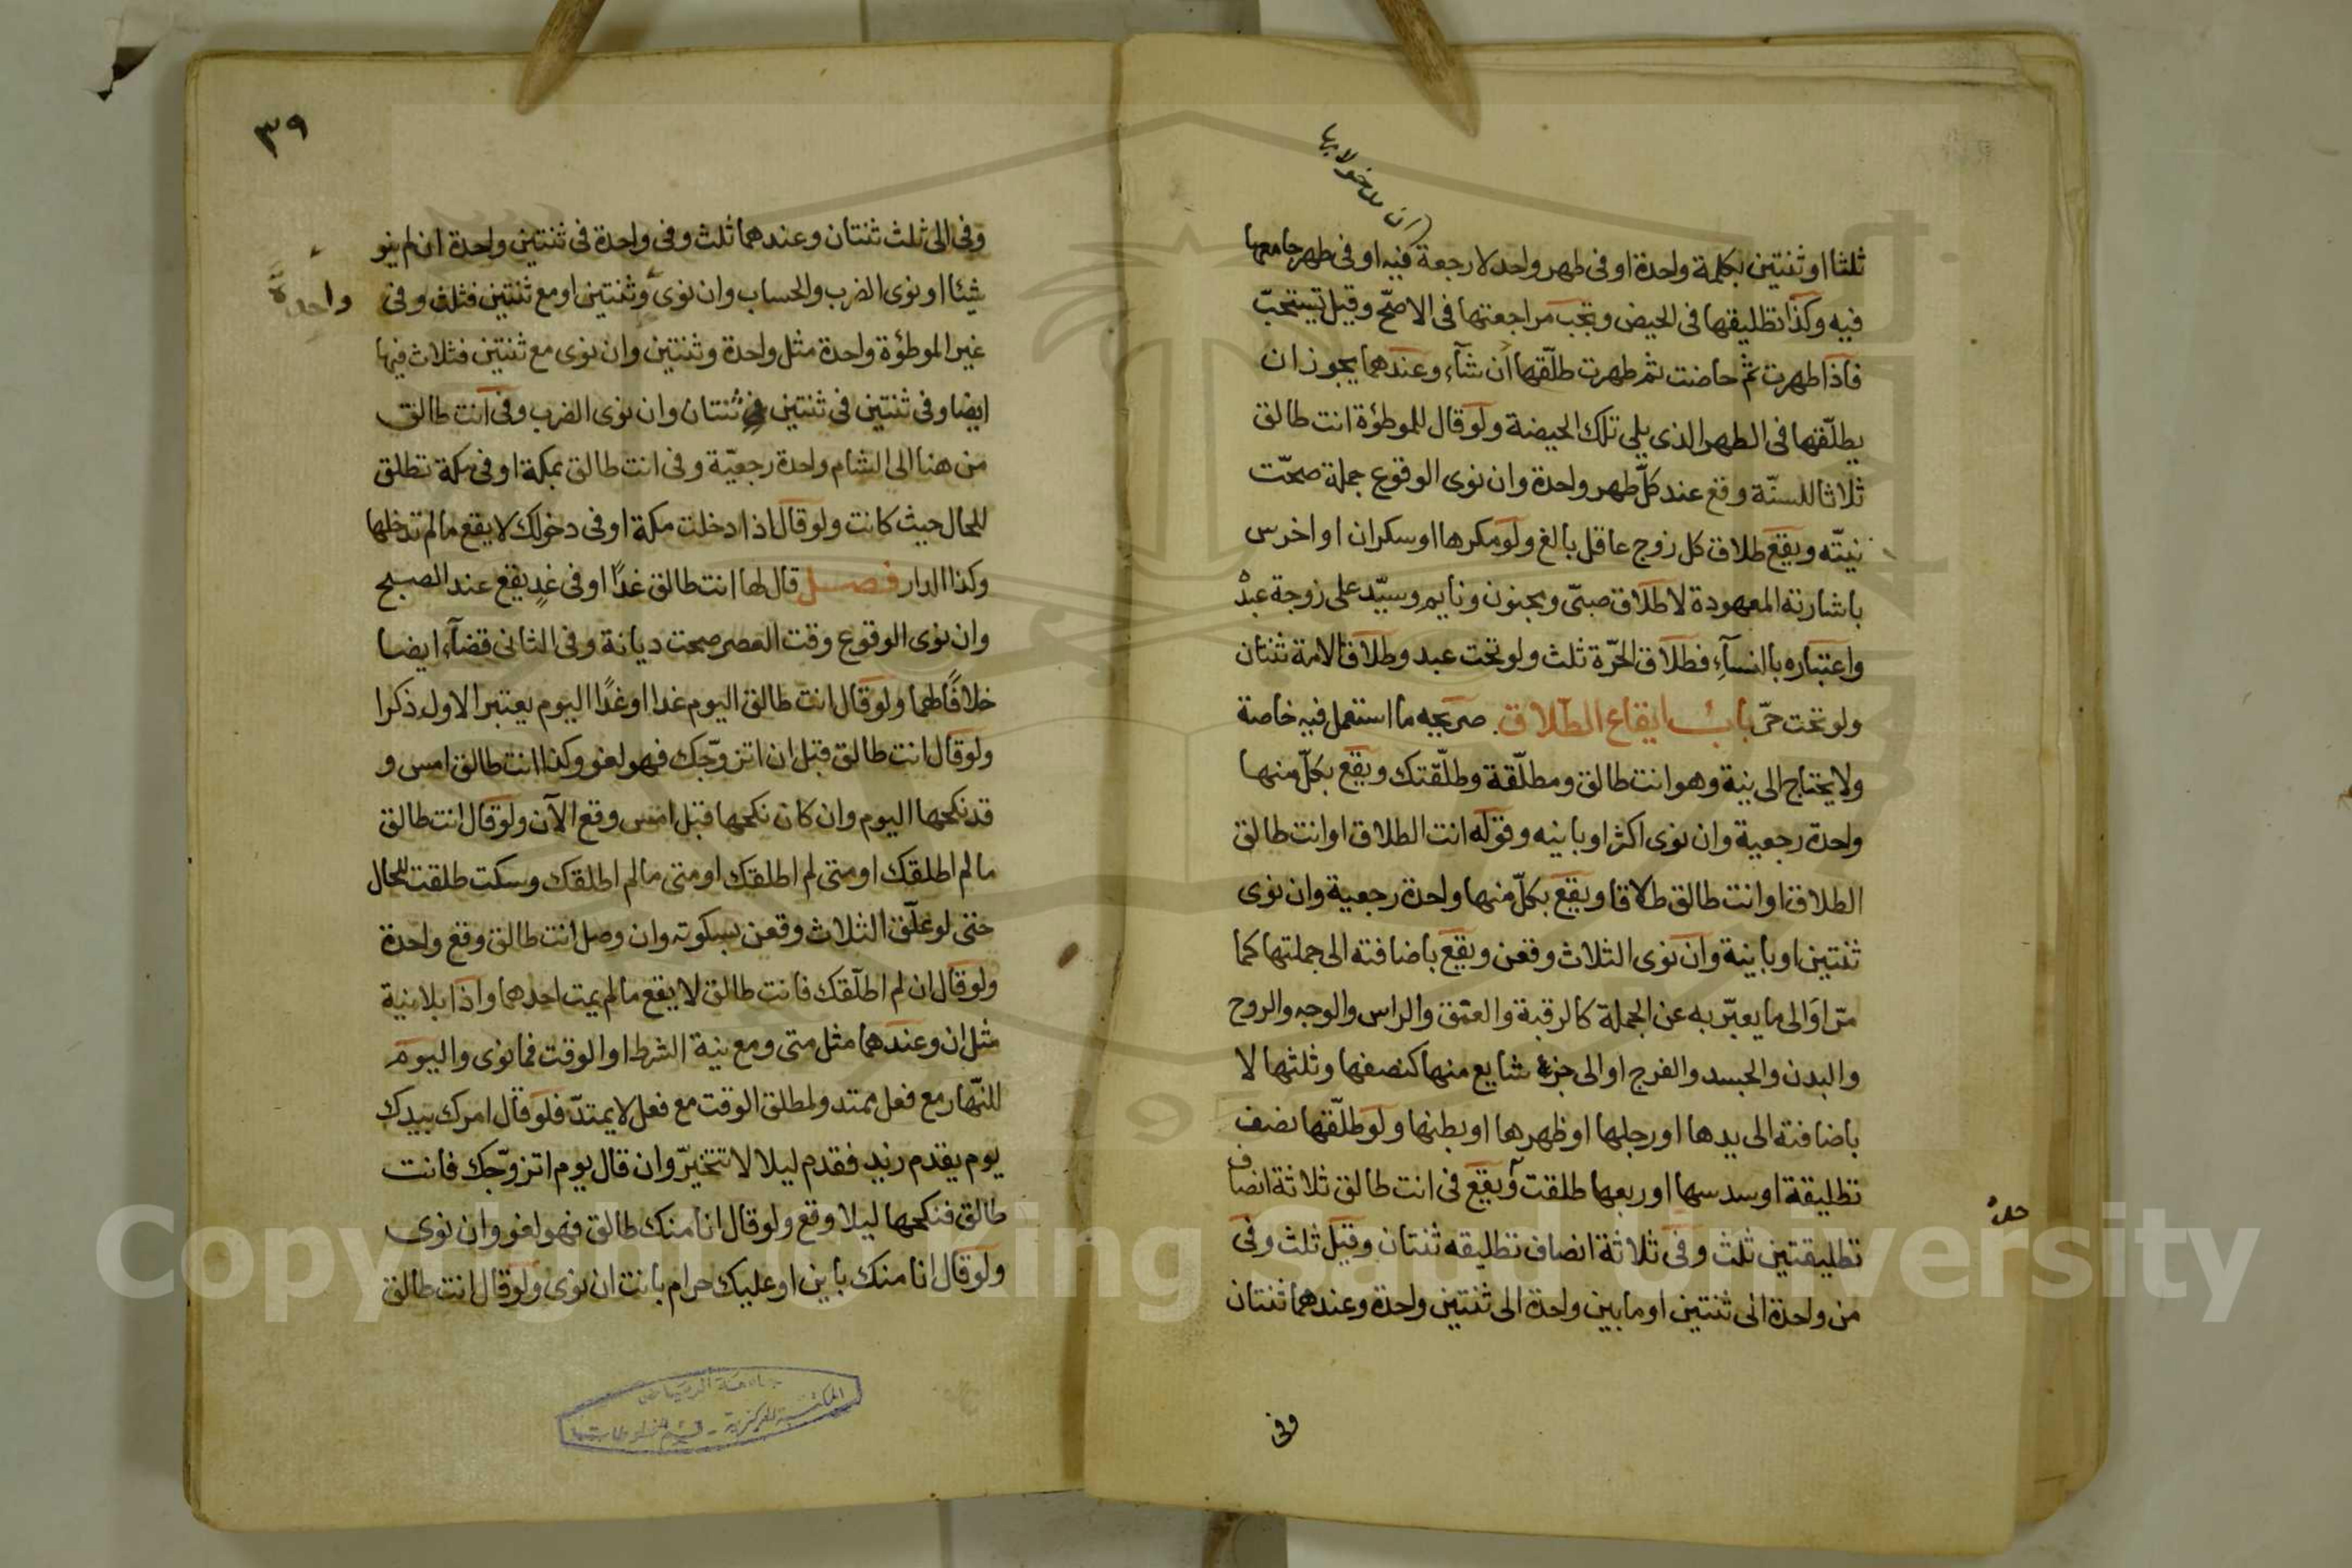 ان مدخولا بها
ثلثا او ثنتين بكلمة واحدة او فى طهر واحد لا رجعة فيه او فى طهر جامعها
فيه وكذا تطليقها فى الحيض وتجب مراجعتها فى الاصحّ وقيل تستحبّ
فاذا طهرت ثم حاضت ثم طهرت طلّقها ان شآء وعندهما يجوز ان
يطلّقها فى الطهر الذى يلى تلك الحيضة ولو قال للموطؤة انت طالق
ثلاثا للسنّة وقع عند كلّ طهر واحدة وان نوى الوقوع جملة صحّت
نيتّه ويقع طلاق كل زوج عاقل بالغ ولو مكرها او سكران او اخرس
باشارته المعهودة لا طلاق صبىّ ومجنون ونايم وسيّد على زوجة عبده
واعتباره باالنسآء فطلاق الحرّة ثلث ولو تحت عبد وطلاق الامة ثنتان
ولو تحت حرّ باب ايقاع الطلاق صريحه ما استعمل فيه خاصة
ولا يحتاج الى نية وهو انت طالق ومطلّقة وطلّقتك ويقع بكلّ منها
واحدة رجعية وان نوى اكثر او باينه وقوله انت الطلاق او انت طالق
الطلاق او انت طالق طلاقا ويقع بكلّ منها واحدة رجعية وان نوى
ثنتين او باينة وان نوى الثلاث وقعن ويقع باضافته الى جملتها كما
مرّ او الى ما يعبّر به عن الجملة كالرقبة والعنق والراس والوجه والروح
والبدن والجسد والفرج او الى جزء شايع منها كنصفها وثلثها لا
باضافته الى يدها او رجلها او ظهرها او بطنها ولو طلّقها نصف
تطليقة او سدسها او ربعها طلقت ويقع فى انت طالق ثلاثة انصاف
تطليقتين ثلث وفى ثلاثة انصاف تطليقه ثنتان وقيل ثلث وفى
من واحدة الى ثنتين او ما بين واحدة الى ثنتين واحدة وعندهما ثنتان
وفى
٣٩
وفى الى ثلث ثنتان وعندهما ثلث وفى واحدة فى ثنتين واحدة ان لم ينو
شيئا او نوى الضرب والحساب وان نوى وثنتين او مع ثنتين فثلث وفى
واحدة
غير الموطؤة واحدة مثل واحدة وثنتين وان نوى مع ثنتين فثلاث فيها
ايضا وفى ثنتين فى ثنتين ثنتان وان نوى الضرب وفى انت طالق
من هنا الى الشام واحدة رجعيّة وفى انت طالق بمكة او فى مكة تطلق
للحال حيث كانت ولو قال اذا دخلت مكة او فى دخولك لا يقع ما لم تدخلها
وكذا الدار فصل قال لها انت طالق غدًا او فى غدٍ يقع عند الصبح
وان نوى الوقوع وقت العصر صحت ديانة وفى الثانى قضآء ايضا
خلافًا لهما ولو قال انت طالق اليوم غدا او غدًا اليوم يعتبر الاول ذكرا
ولو قال انت طالق قبل ان اتزوّجك فهو لغو وكذا انت طالق امس و
قد نكحها اليوم وان كان نكحها قبل امس وقع الآن ولو قال انت طالق
ما لم اطلقك او متى لم اطلقك او متى ما لم اطلقك وسكت طلقت للحال
حتى لو علّق الثلاث وقعن بسكوته وان وصل انت طالق وقع واحدة
ولو قال ان لم اطلّقك فانت طالق لا يقع ما لم يمت احدهما واذا بلا نية
مثل ان وعندهما مثل متى ومع نية الشرط او الوقت فما نوى واليوم
للنّهار مع فعل ممتد ولمطلق الوقت مع فعل لا يمتدّ فلو قال امرك بيدك
يوم يقدم زيد فقدم ليلا لا تتخيّر وان قال يوم اتزوّجك فانت
طالق فنكحها ليلا وقع ولو قال انا منك طالق فهو لغو وان نوى
ولو قال انا منك باين او عليك حرام بانت ان نوى ولو قال انت طالق
جامعة الرياض
المكتبة المركزية - قسم المخطوطات
Copyright © King Saud University